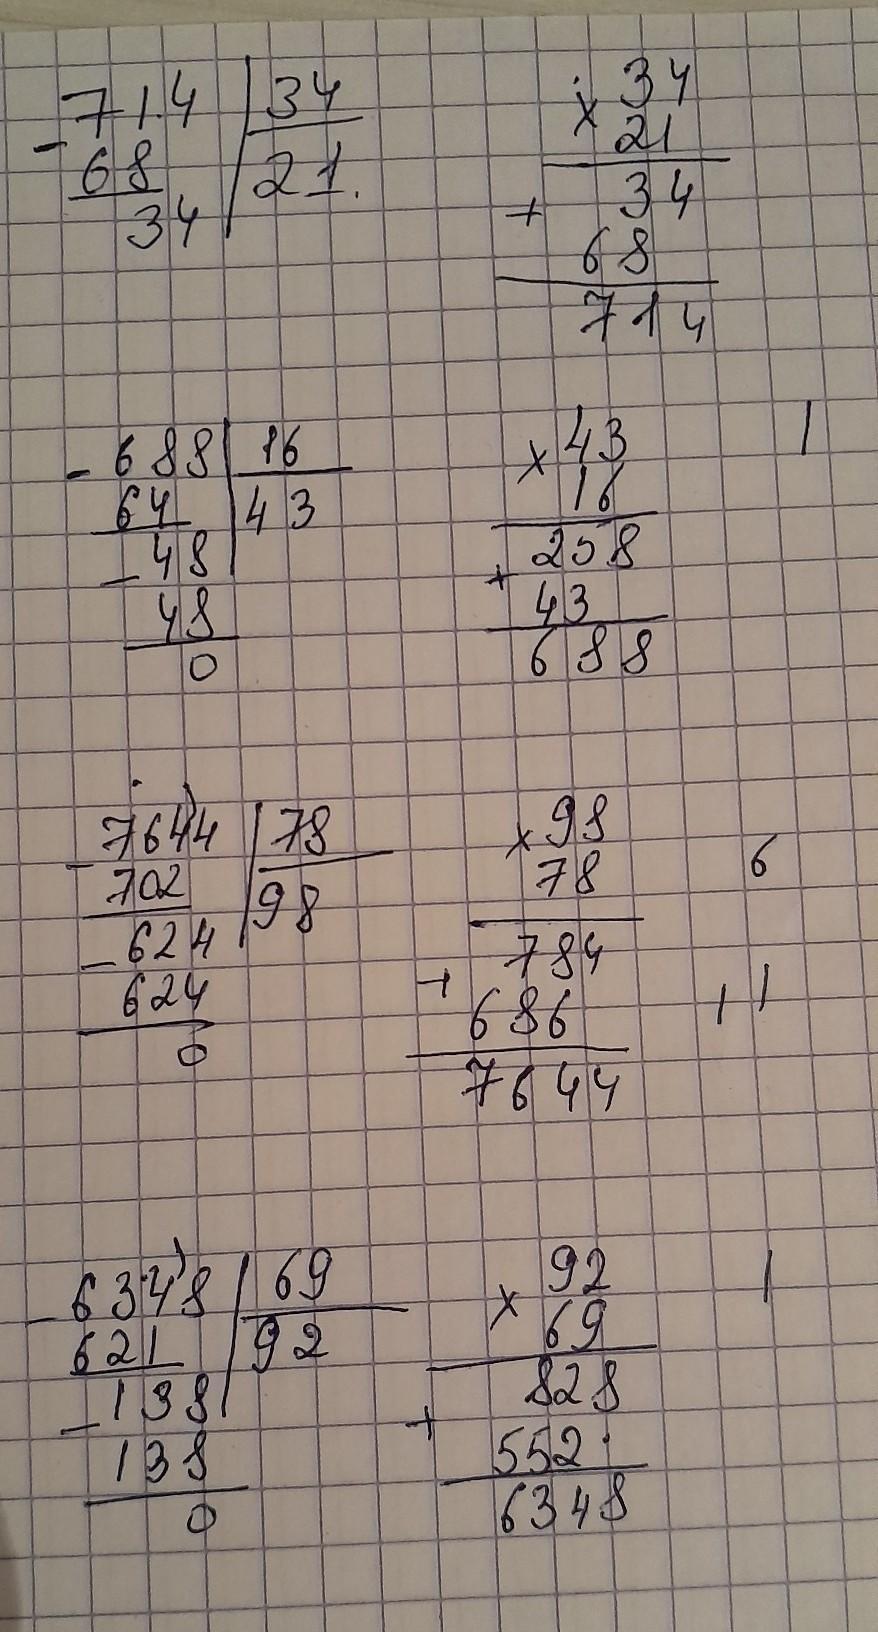 - 714 | 34
68 | 21.
34
× 34
21
+ 34
68
714
- 688 | 16
64 | 43
- 48
48
0
× 43
16
+ 258
43
688
1
- 7644 | 78
702 | 98
- 624
624
0
× 98
78
+ 784
686
7644
6
1 1
- 6348 | 69
621 | 92
- 138
138
0
× 92
69
+ 828
552
6348
1